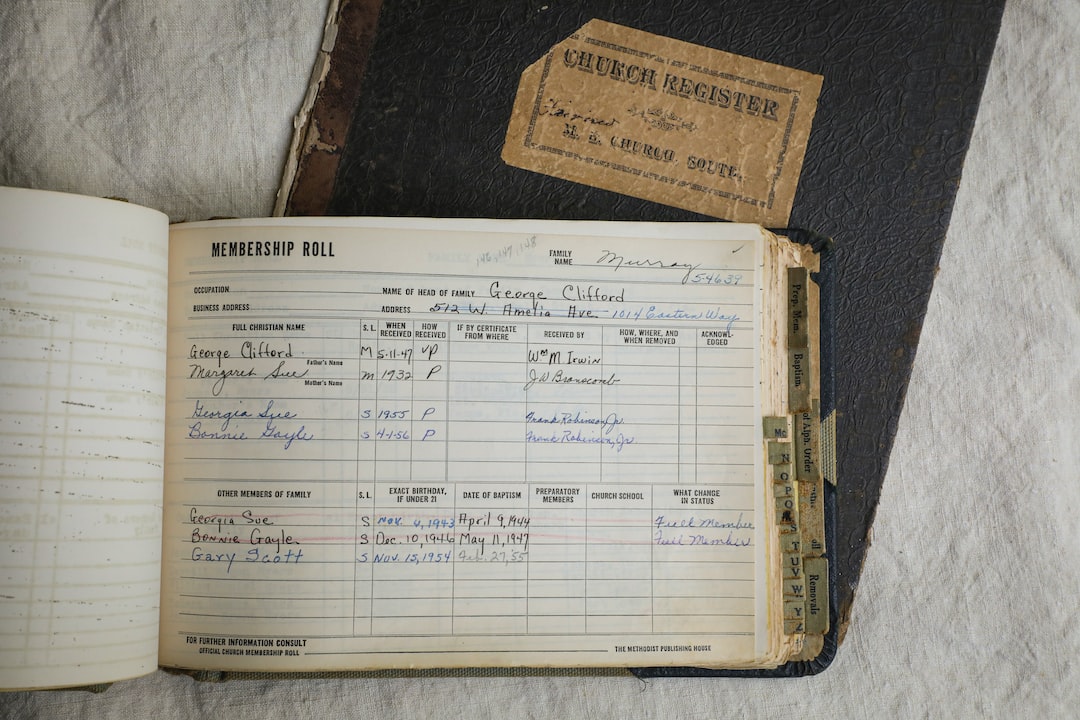 CHURCH REGISTER
M. E. CHURCH, SOUTH.
MEMBERSHIP ROLL 146, 147, 148 FAMILY NAME Murray
54639
OCCUPATION NAME OF HEAD OF FAMILY George Clifford
BUSINESS ADDRESS ADDRESS 512 W. Amelia Ave. 1014 Eastern Way
FULL CHRISTIAN NAME S. L. WHEN RECEIVED HOW RECEIVED IF BY CERTIFICATE FROM WHERE RECEIVED BY HOW, WHERE, AND WHEN REMOVED ACKNOWL-EDGED
George Clifford M 5-11-47 VP Wm M Irwin
Father's Name
Margaret Sue M 1932 P J W Branscomb
Mother's Name
Georgia Sue S 1955 P Frank Robinson, Jr.
Bonnie Gayle S 4-1-56 P Frank Robinson, Jr.
OTHER MEMBERS OF FAMILY S. L. EXACT BIRTHDAY, IF UNDER 21 DATE OF BAPTISM PREPARATORY MEMBERS CHURCH SCHOOL WHAT CHANGE IN STATUS
Georgia Sue S Nov. 4, 1943 April 9, 1944 Full Member
Bonnie Gayle S Dec. 10, 1946 May 11, 1947 Full Member
Gary Scott S Nov. 15, 1954 Feb. 27, '55
FOR FURTHER INFORMATION CONSULT
OFFICIAL CHURCH MEMBERSHIP ROLL THE METHODIST PUBLISHING HOUSE
Prep. Mem.
Baptism
of Alph. Order
Removals
Mc
N
O
P
Q
R
S
T
U
V
W
Y
Z